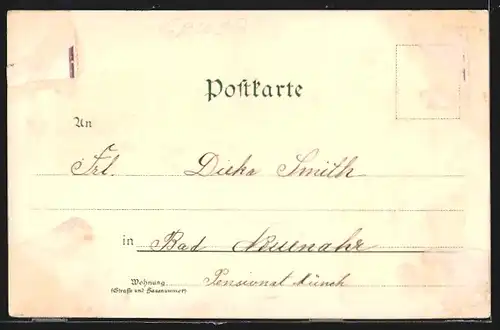 Postkarte
An
Frl. Dieka Smith
in Bad Neuenahr
Wohnung Pensionat Münch
(Straße und Hausnummer)